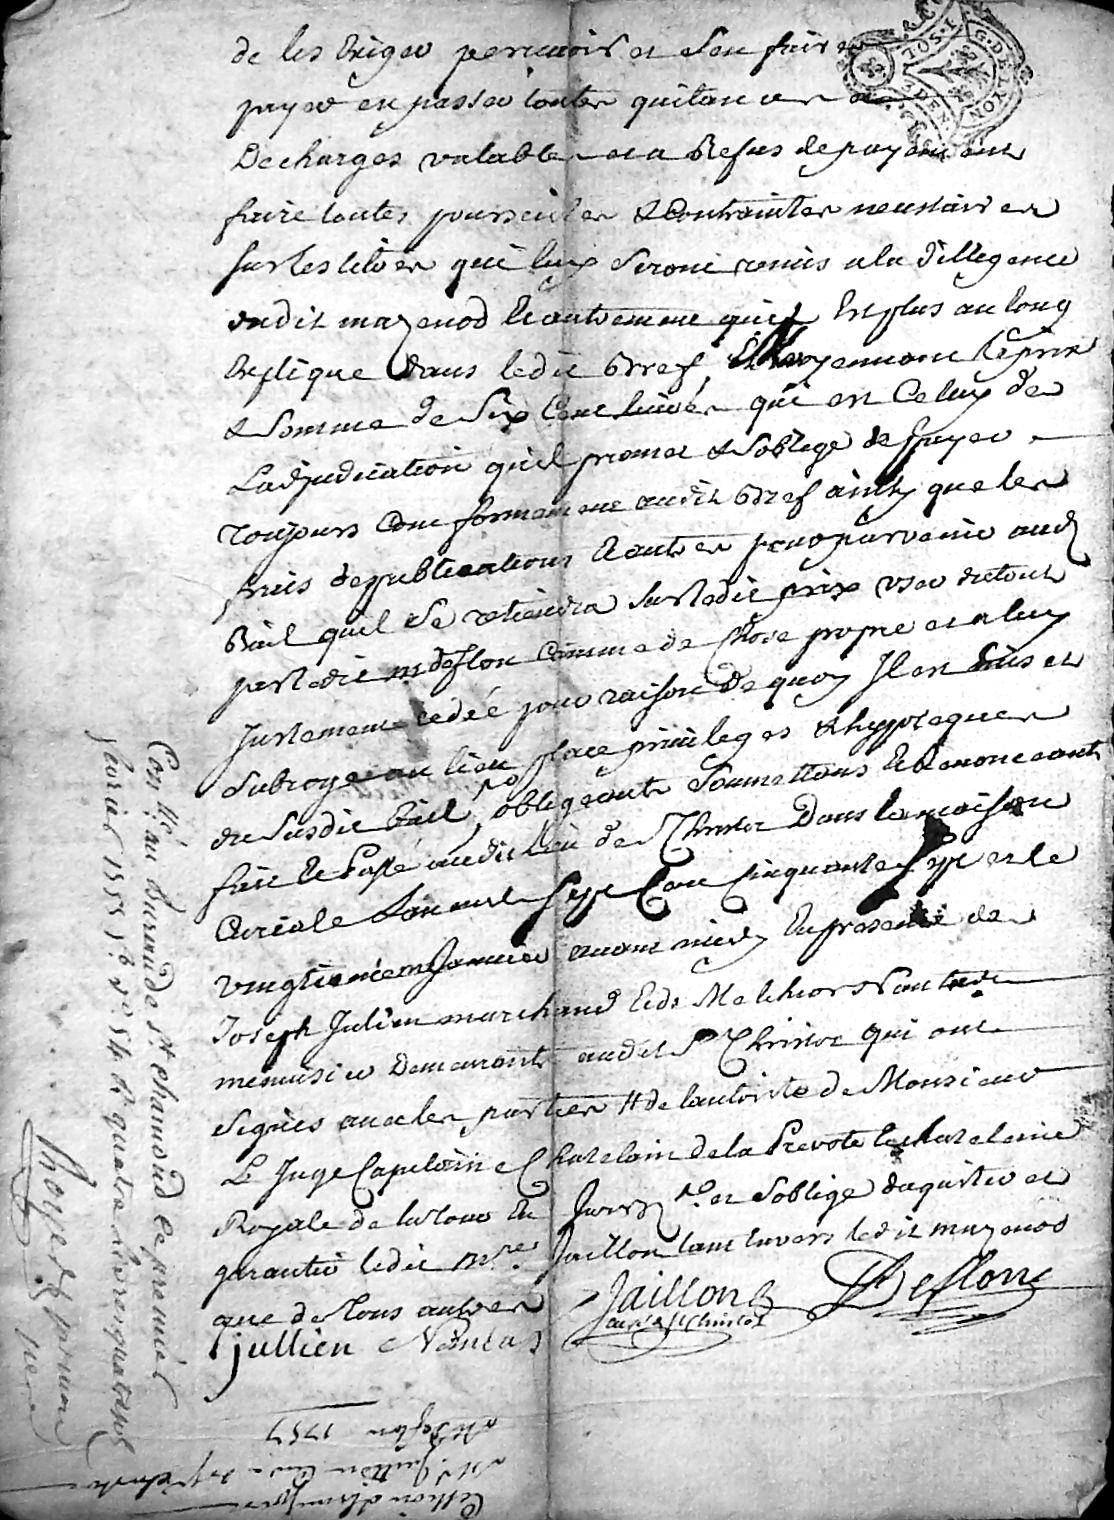 de les Exiger percevoir et s'en faire
payer en passer toutes quitances et
Decharges valables et a Refus de payement
faire toutes poursuites & contraintes necessaires
sur les titres que luy seront remis a la dillegence
dudit mazenod & autrement quil est plus au long
Explique dans ledit Bref, Et moyennant le prix
& Somme de Six Cent livres qui est Celuy de
Ladjudication quil promet & Soblige de payer
Toujours Conformement audit Bref ainsy que les
frais de publications & autres pour parvenir aud
Bail quil se retiendra sur ledit prix user du tout
par ledit mr deflon comme de Chose propre et a luy
Justement cedée pour raison de quoy Il est mis et
Subroge au lieu place privileges & hypoteques
du Susdit Bail, obligeants Soumettans & Renonceants
fait & Passé audit lieu de St Christoc Dans la maison
Curiale Lan mil Sept Cent Cinquante Sept et le
vingtieme Janvier avant midy En presence de
Joseph Julien marchand & de Melchior
menuisier Demeurants audit St Christoc qui ont
Signés avec les parties # de lautorite de Monsieur
Le Juge Capitaine Chatelain de la Prevote & chatelenie
Royale de la tour En Jarez, et Soblige daquiter et
garantir ledit mre Jaillon tant Envers ledit mazenod
que de Tous autres
Jaillon
curé de St Christoc
Deflon
jullien
Conlle au Bureau de St chamond le premier
fevrier 1757 fo No 54 R quatre livres quatre sols
1757